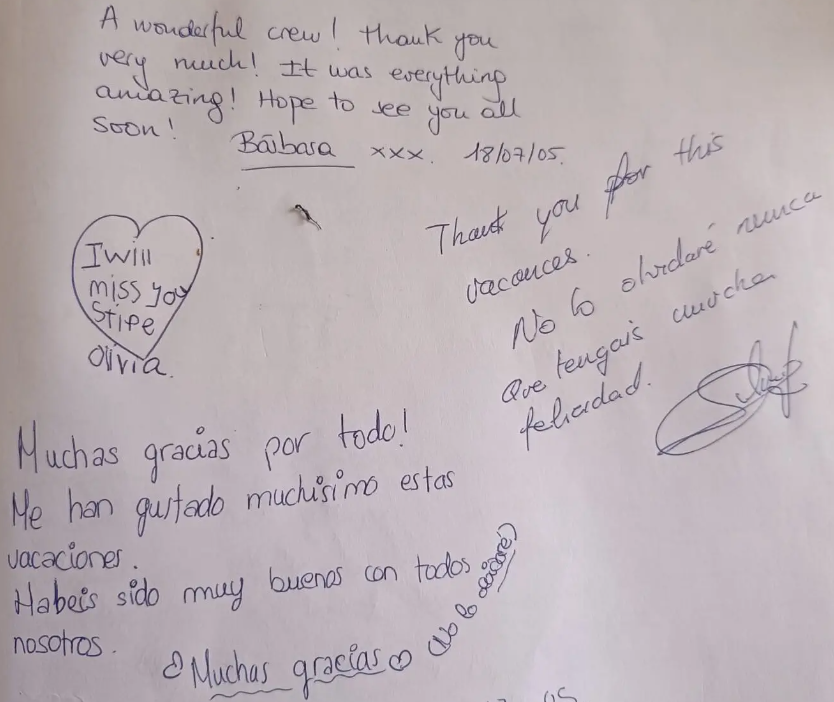 A wonderful crew! thank you
very much! It was everything
amazing! Hope to see you all
soon!
Bárbara xxx. 18/07/05.
I will
miss you
Stipe
Olivia.
Thank you for this
vacances.
No lo olvidaré nunca
Que tengais mucha
felicidad.
Muchas gracias por todo!
Me han gustado muchisimo estas
vacaciones.
Habeis sido muy buenos con todos
nosotros.
Muchas gracias
(No lo olvidaré!)